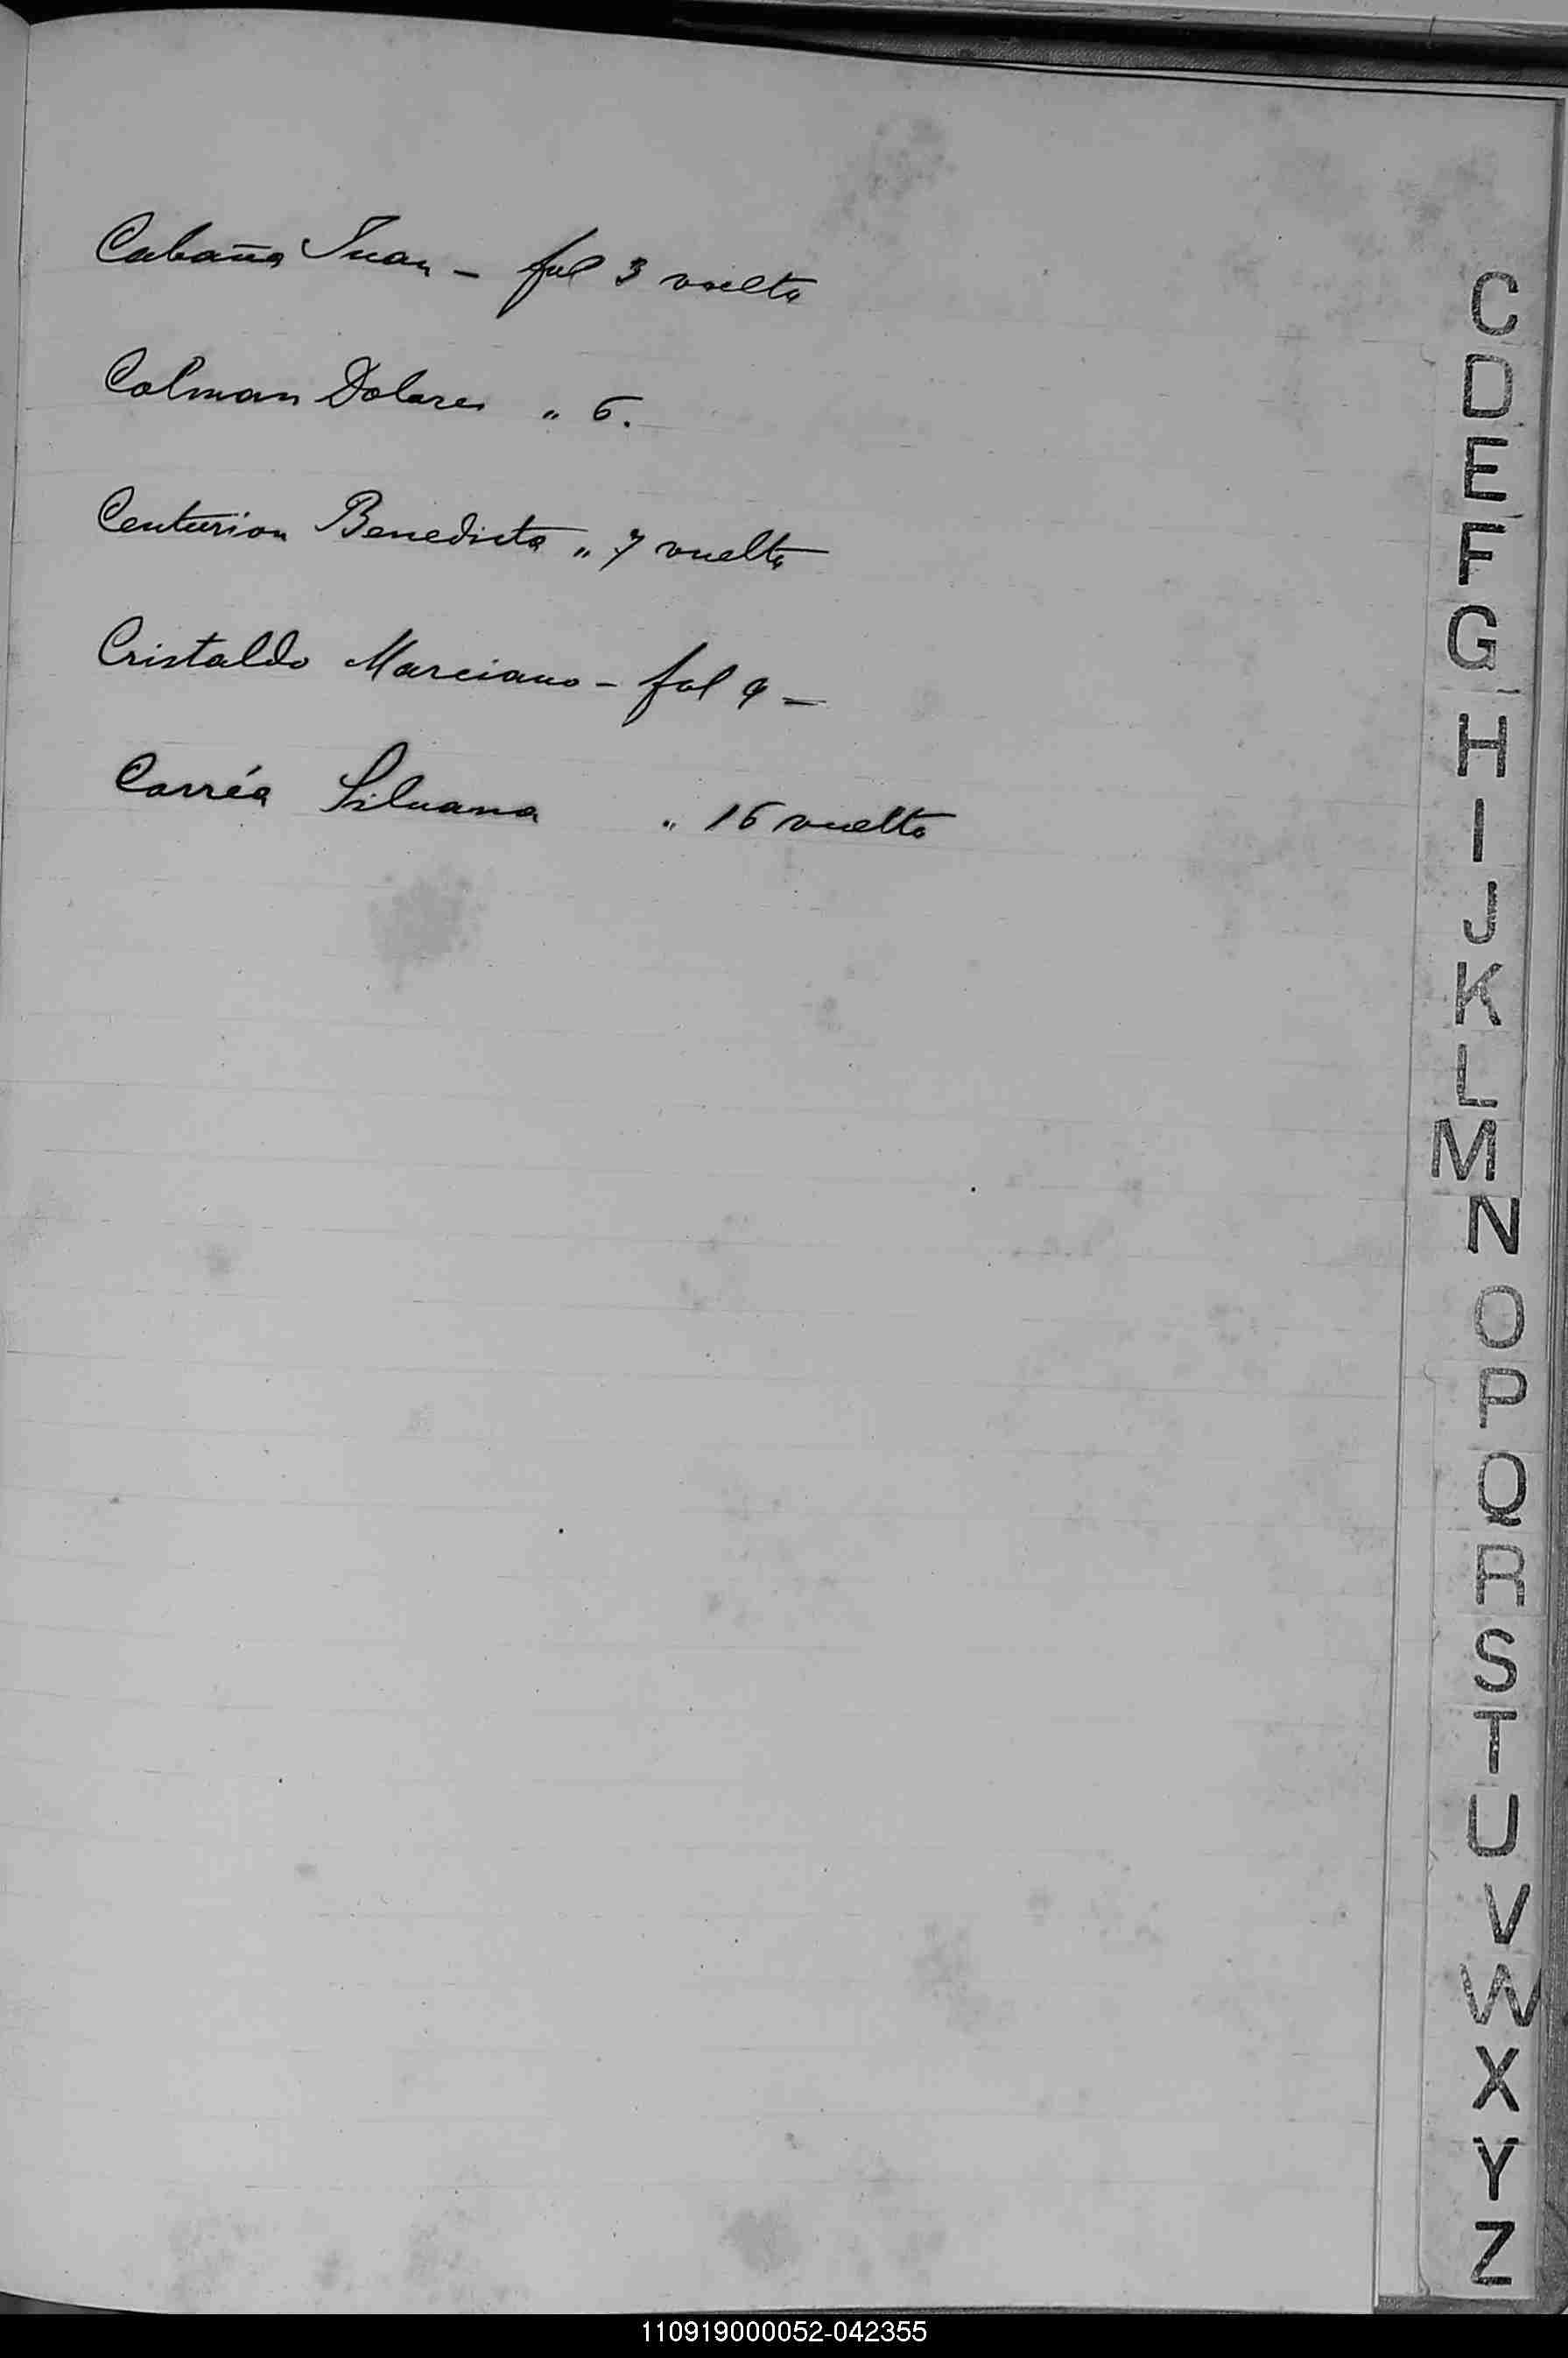 Cabaña Juan - fol 3 vuelta
Colman Dolores „ 6.
Centurion Benedicta „ 7 vuelta
Cristaldo Marciano - fol 9 -
Corréa Silvana „ 16 vuelta
C
D
E
F
G
H
I
J
K
L
M
N
O
P
Q
R
S
T
U
V
W
X
Y
Z
110919000052-042355